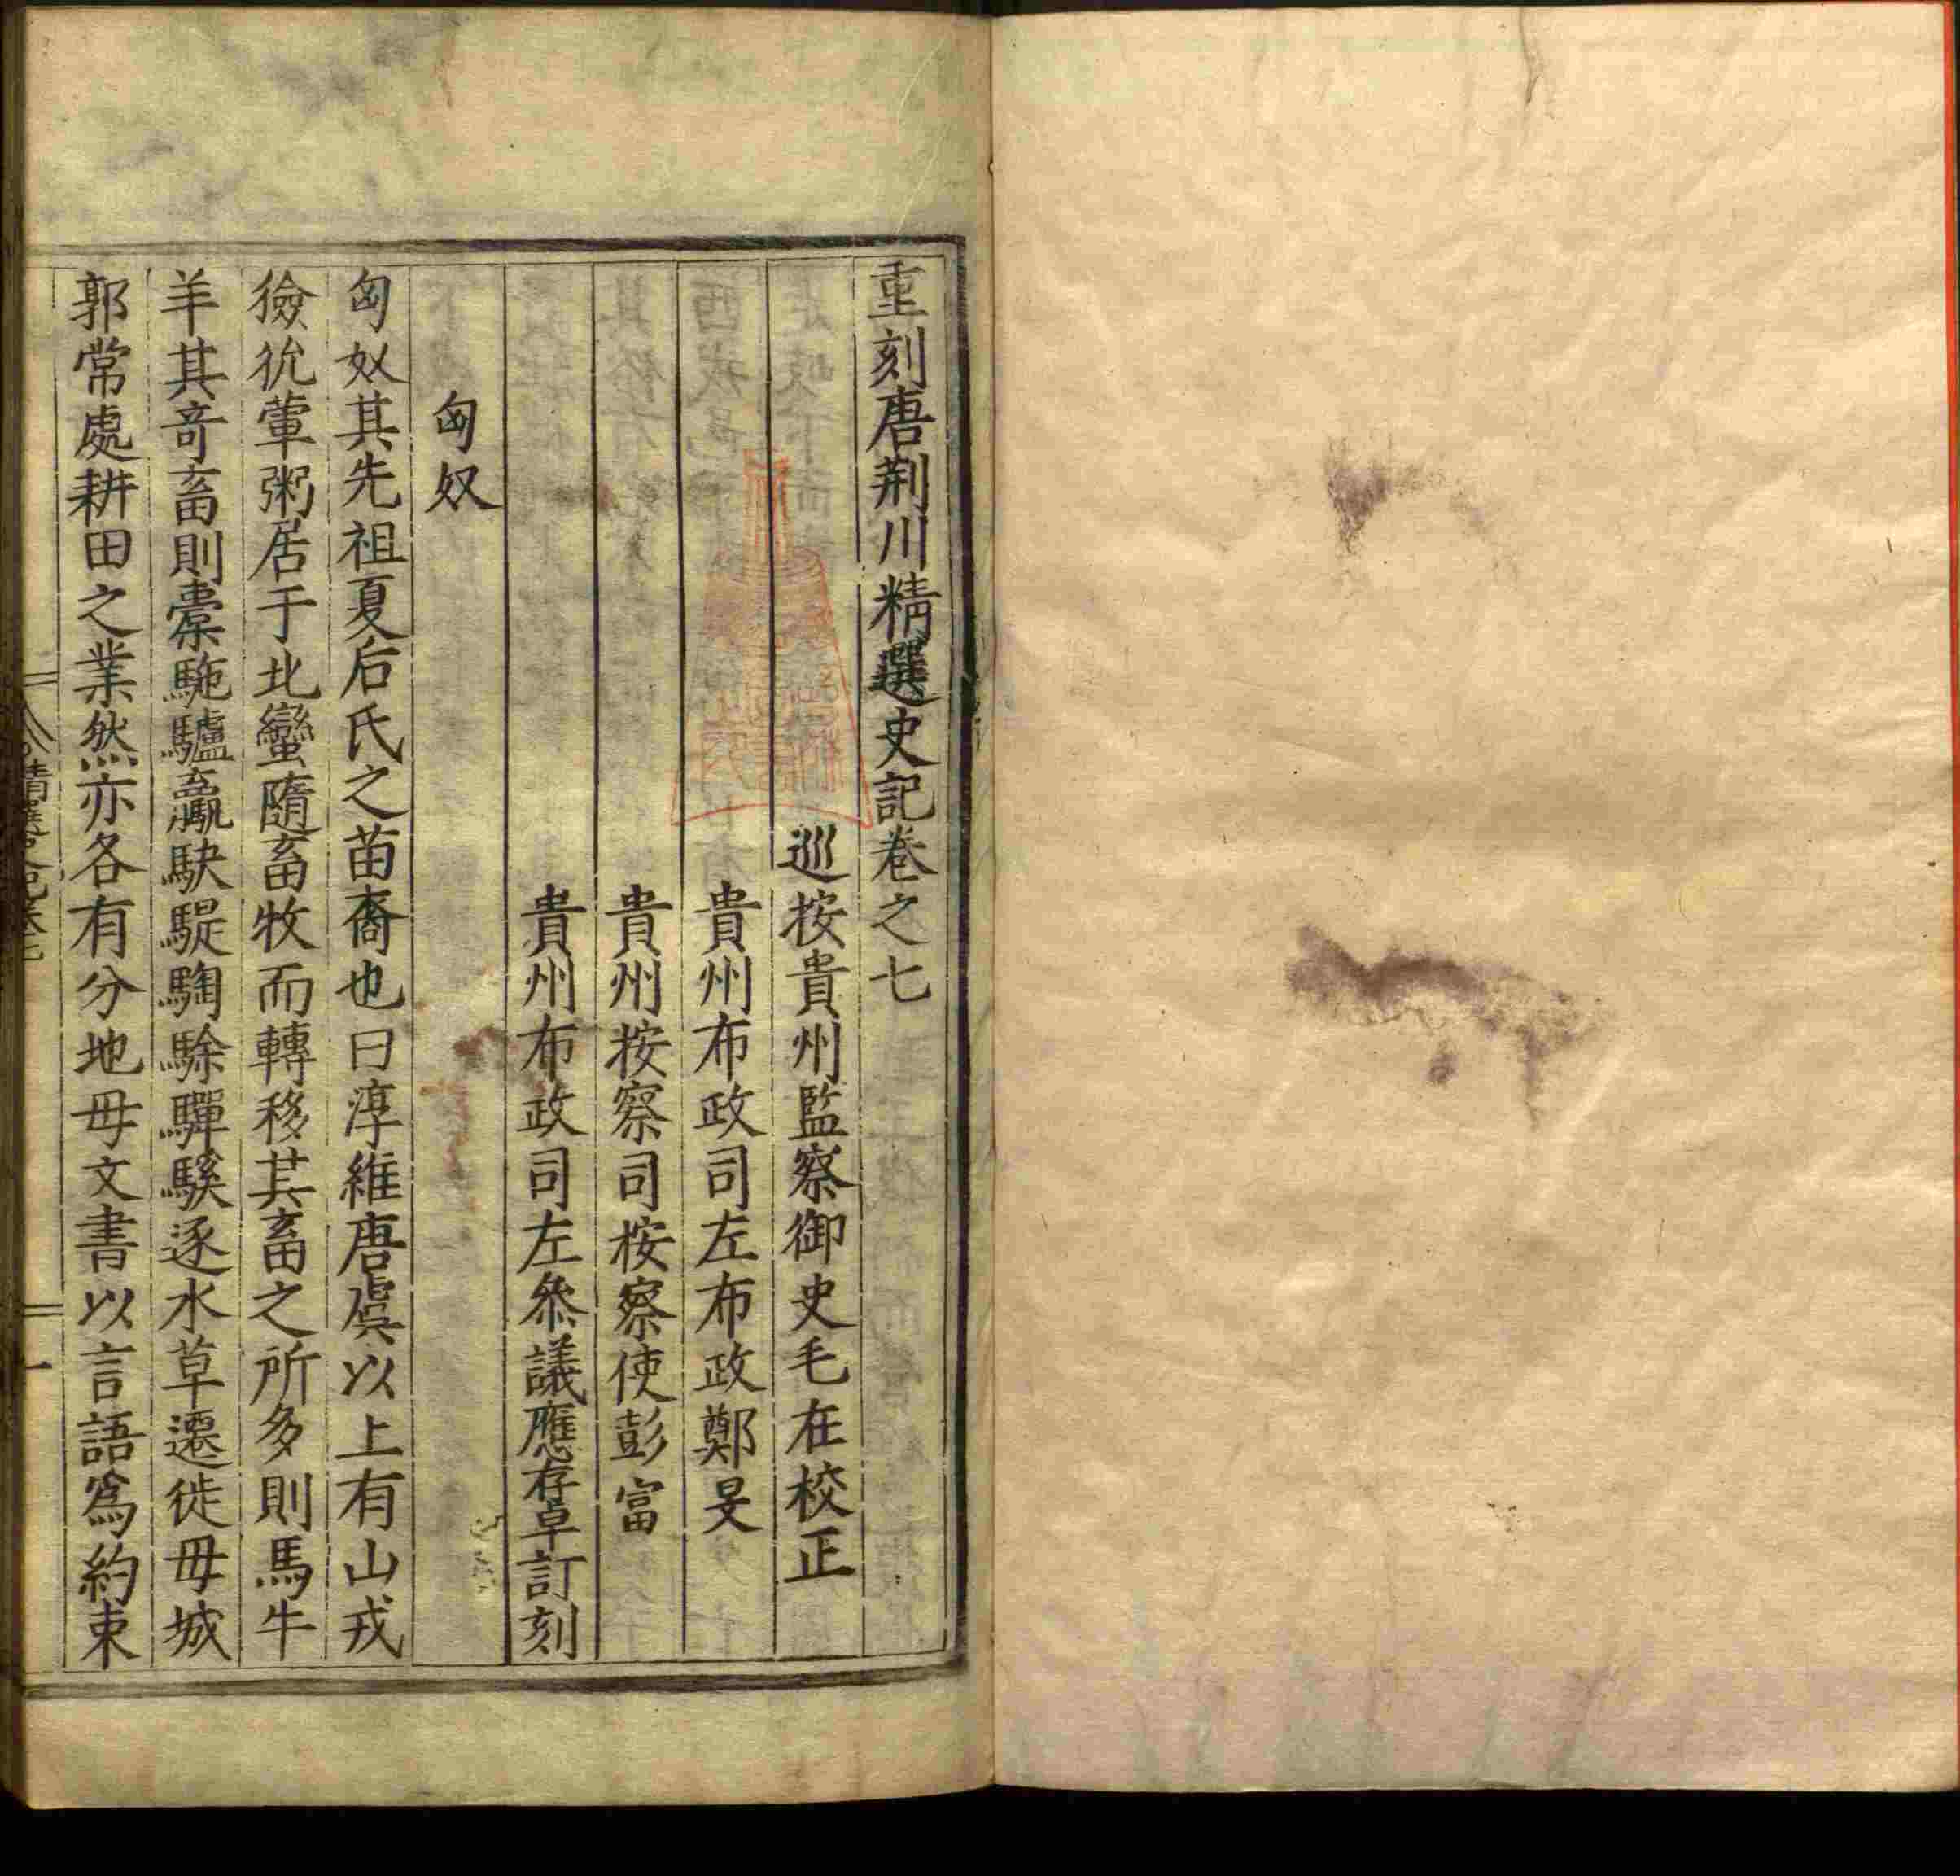 重刻唐荆川精選史記卷之七
巡按貴州監察御史毛在校正
貴州布政司左布政鄭旻
貴州按察司按察使彭富
貴州布政司左叅議應存卓訂刻
匈奴
匈奴其先祖夏后氏之苗裔也曰淳維唐虞以上有山戎
獫狁葷粥居于北蠻隨畜牧而轉移其畜之所多則馬牛
羊其奇畜則橐駞驢驘駃騠騊駼驒騱逐水草遷徙毋城
郭常處耕田之業然亦各有分地毋文書以言語爲約束
精選史記卷七
一